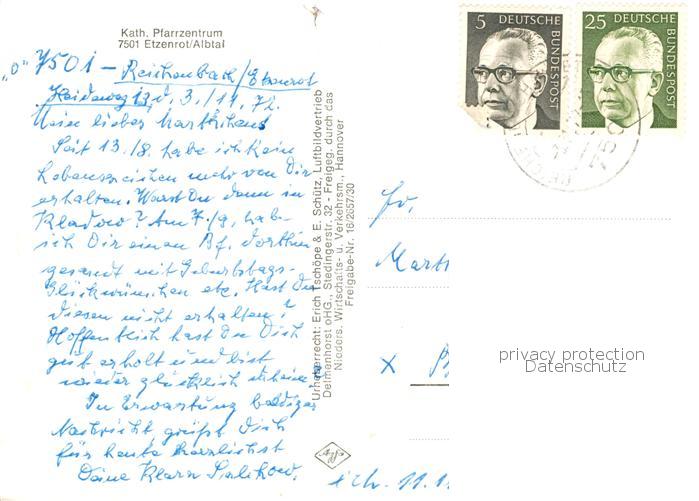 Kath. Pfarrzentrum
7501 Etzenrot/Albtal
"O" 7501 - Reichenbach/Etzenrot
Heideweg 13, d. 3./11. 72.
Mein lieber
Seit 13./8. habe ich kein
Lebenszeichen mehr von Dir
erhalten. Warst Du denn in
Kladow? Am 7./9. hab
ich Dir einen Bf. dorthin
gesandt mit Geburtstags-
Glückwünschen etc. Hast Du
diesen nicht erhalten?
Hoffentlich hast Du Dich
gut erholt und bist
wieder glücklich daheim?
In Erwartung baldiger
Nachricht grüßt Dich
für heute herzlichst
Deine Klara
Urheberrecht: Erich Tschöpe & E. Schütz, Luftbildvertrieb
Delmenhorst oHG., Stedingerstr. 32 - Freigeg. durch das
Nieders. Wirtschafts- u. Verkehrsm., Hannover
Freigabe-Nr. 16/2657/30
Agfa
5 DEUTSCHE BUNDESPOST
25 DEUTSCHE BUNDESPOST
750
Fr.
x
privacy protection
Datenschutz